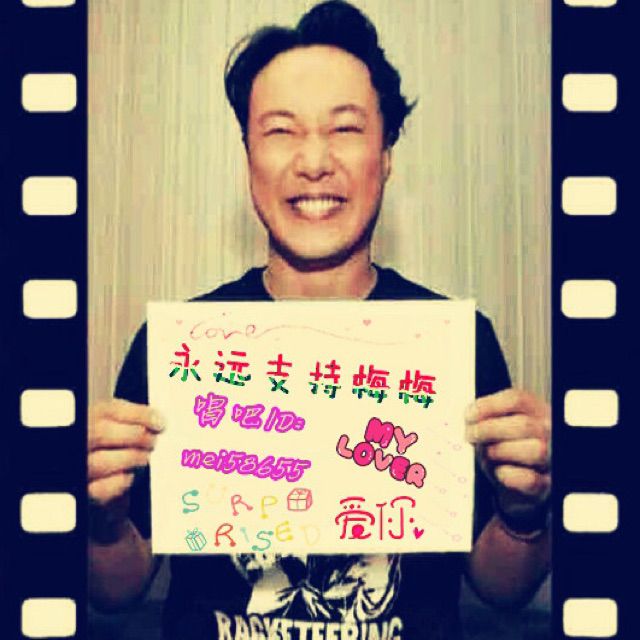 Cover
永远支持梅梅
唱吧ID:
mei58655
MY
LOVER
SURP
RISED
爱你
RACKETEERING